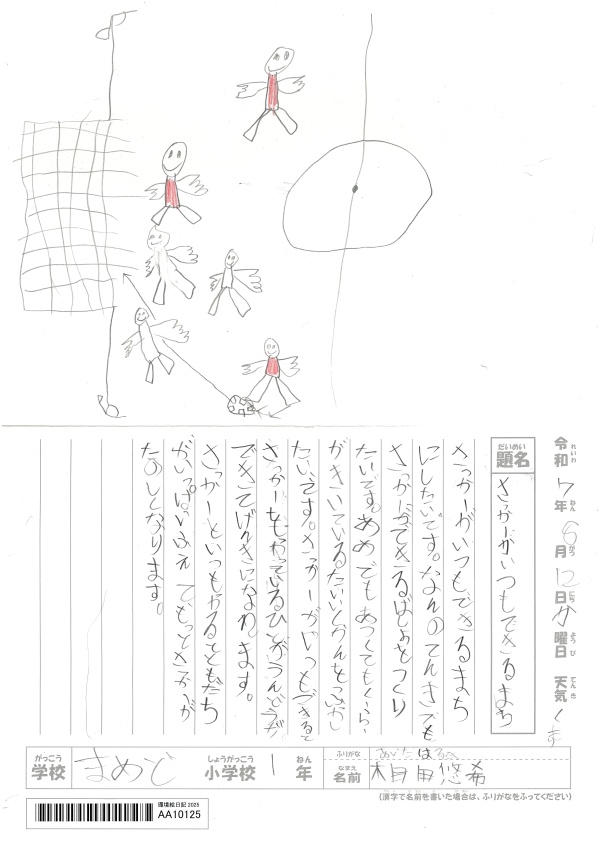 令和7年6月12日か曜日 天気
れいわ ねん がつ にち ようび てんき
だいめい
題名 さっかーがいつもできるまち
さっかーがいつもできるまち
にしたいです。なんのてんきでも
さっかーができるばしょをつくり
たいです。あめでもあつくてもくーらー
がきいているたいいくかんをふやし
たいです。さっかーがいつもできると
さっかーを いるひとがうんどうが
できてげんきになります。
さっかーといつも ともだち
がいっぱいふえてもっとさっかーが
たのしくなります。
がっこう しょうがっこう ねん ふりがな
学校 まめど 小学校 1年 なまえ 名前 相田悠希
(漢字で名前を書いた場合は、ふりがなをふってください)
環境絵日記 2025
AA10125